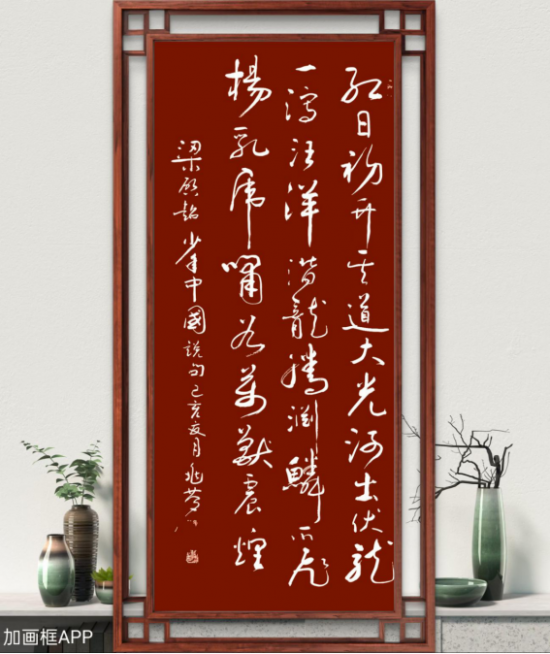 紅日初升其道大光河出伏龍
一瀉汪洋潛龍騰淵鱗爪飛
楊乳虎嘯谷萬獸震煌
梁啟超少年中國說句己亥夏月
加画框APP